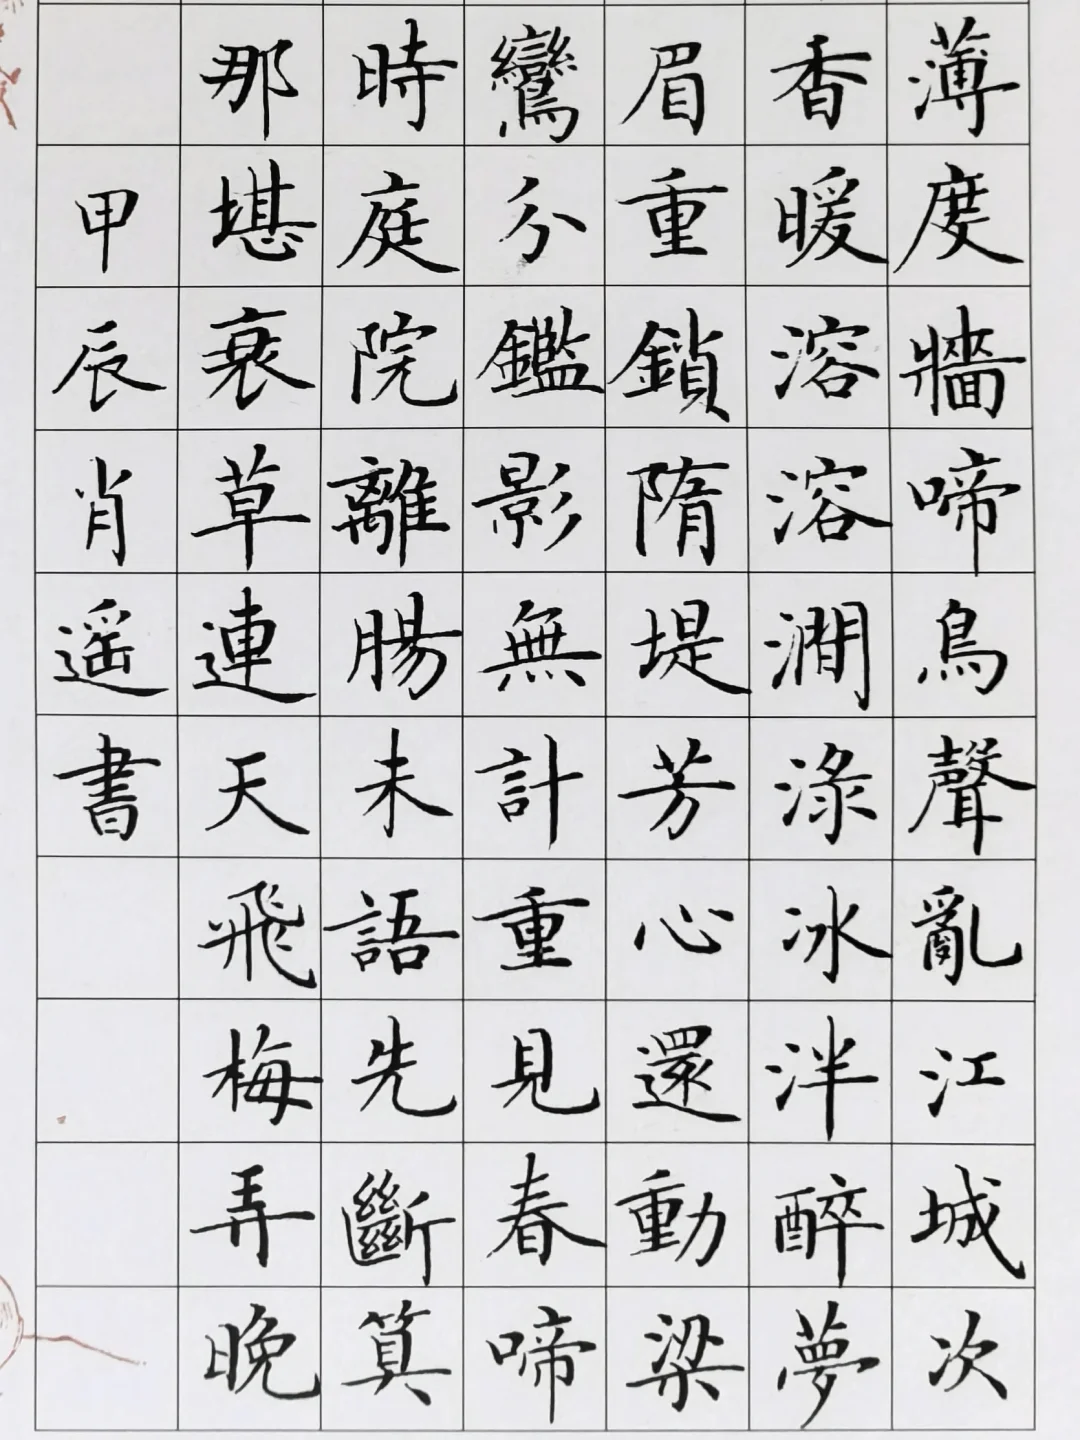 薄度牆啼鳥聲亂江城次
香暖溶溶澗淥冰泮醉夢
眉重鎖隋堤芳心還動梁
鸞分鑑影無計重見春啼
時庭院離腸未語先斷算
那堪衰草連天飛梅弄晚
甲辰肖遥書